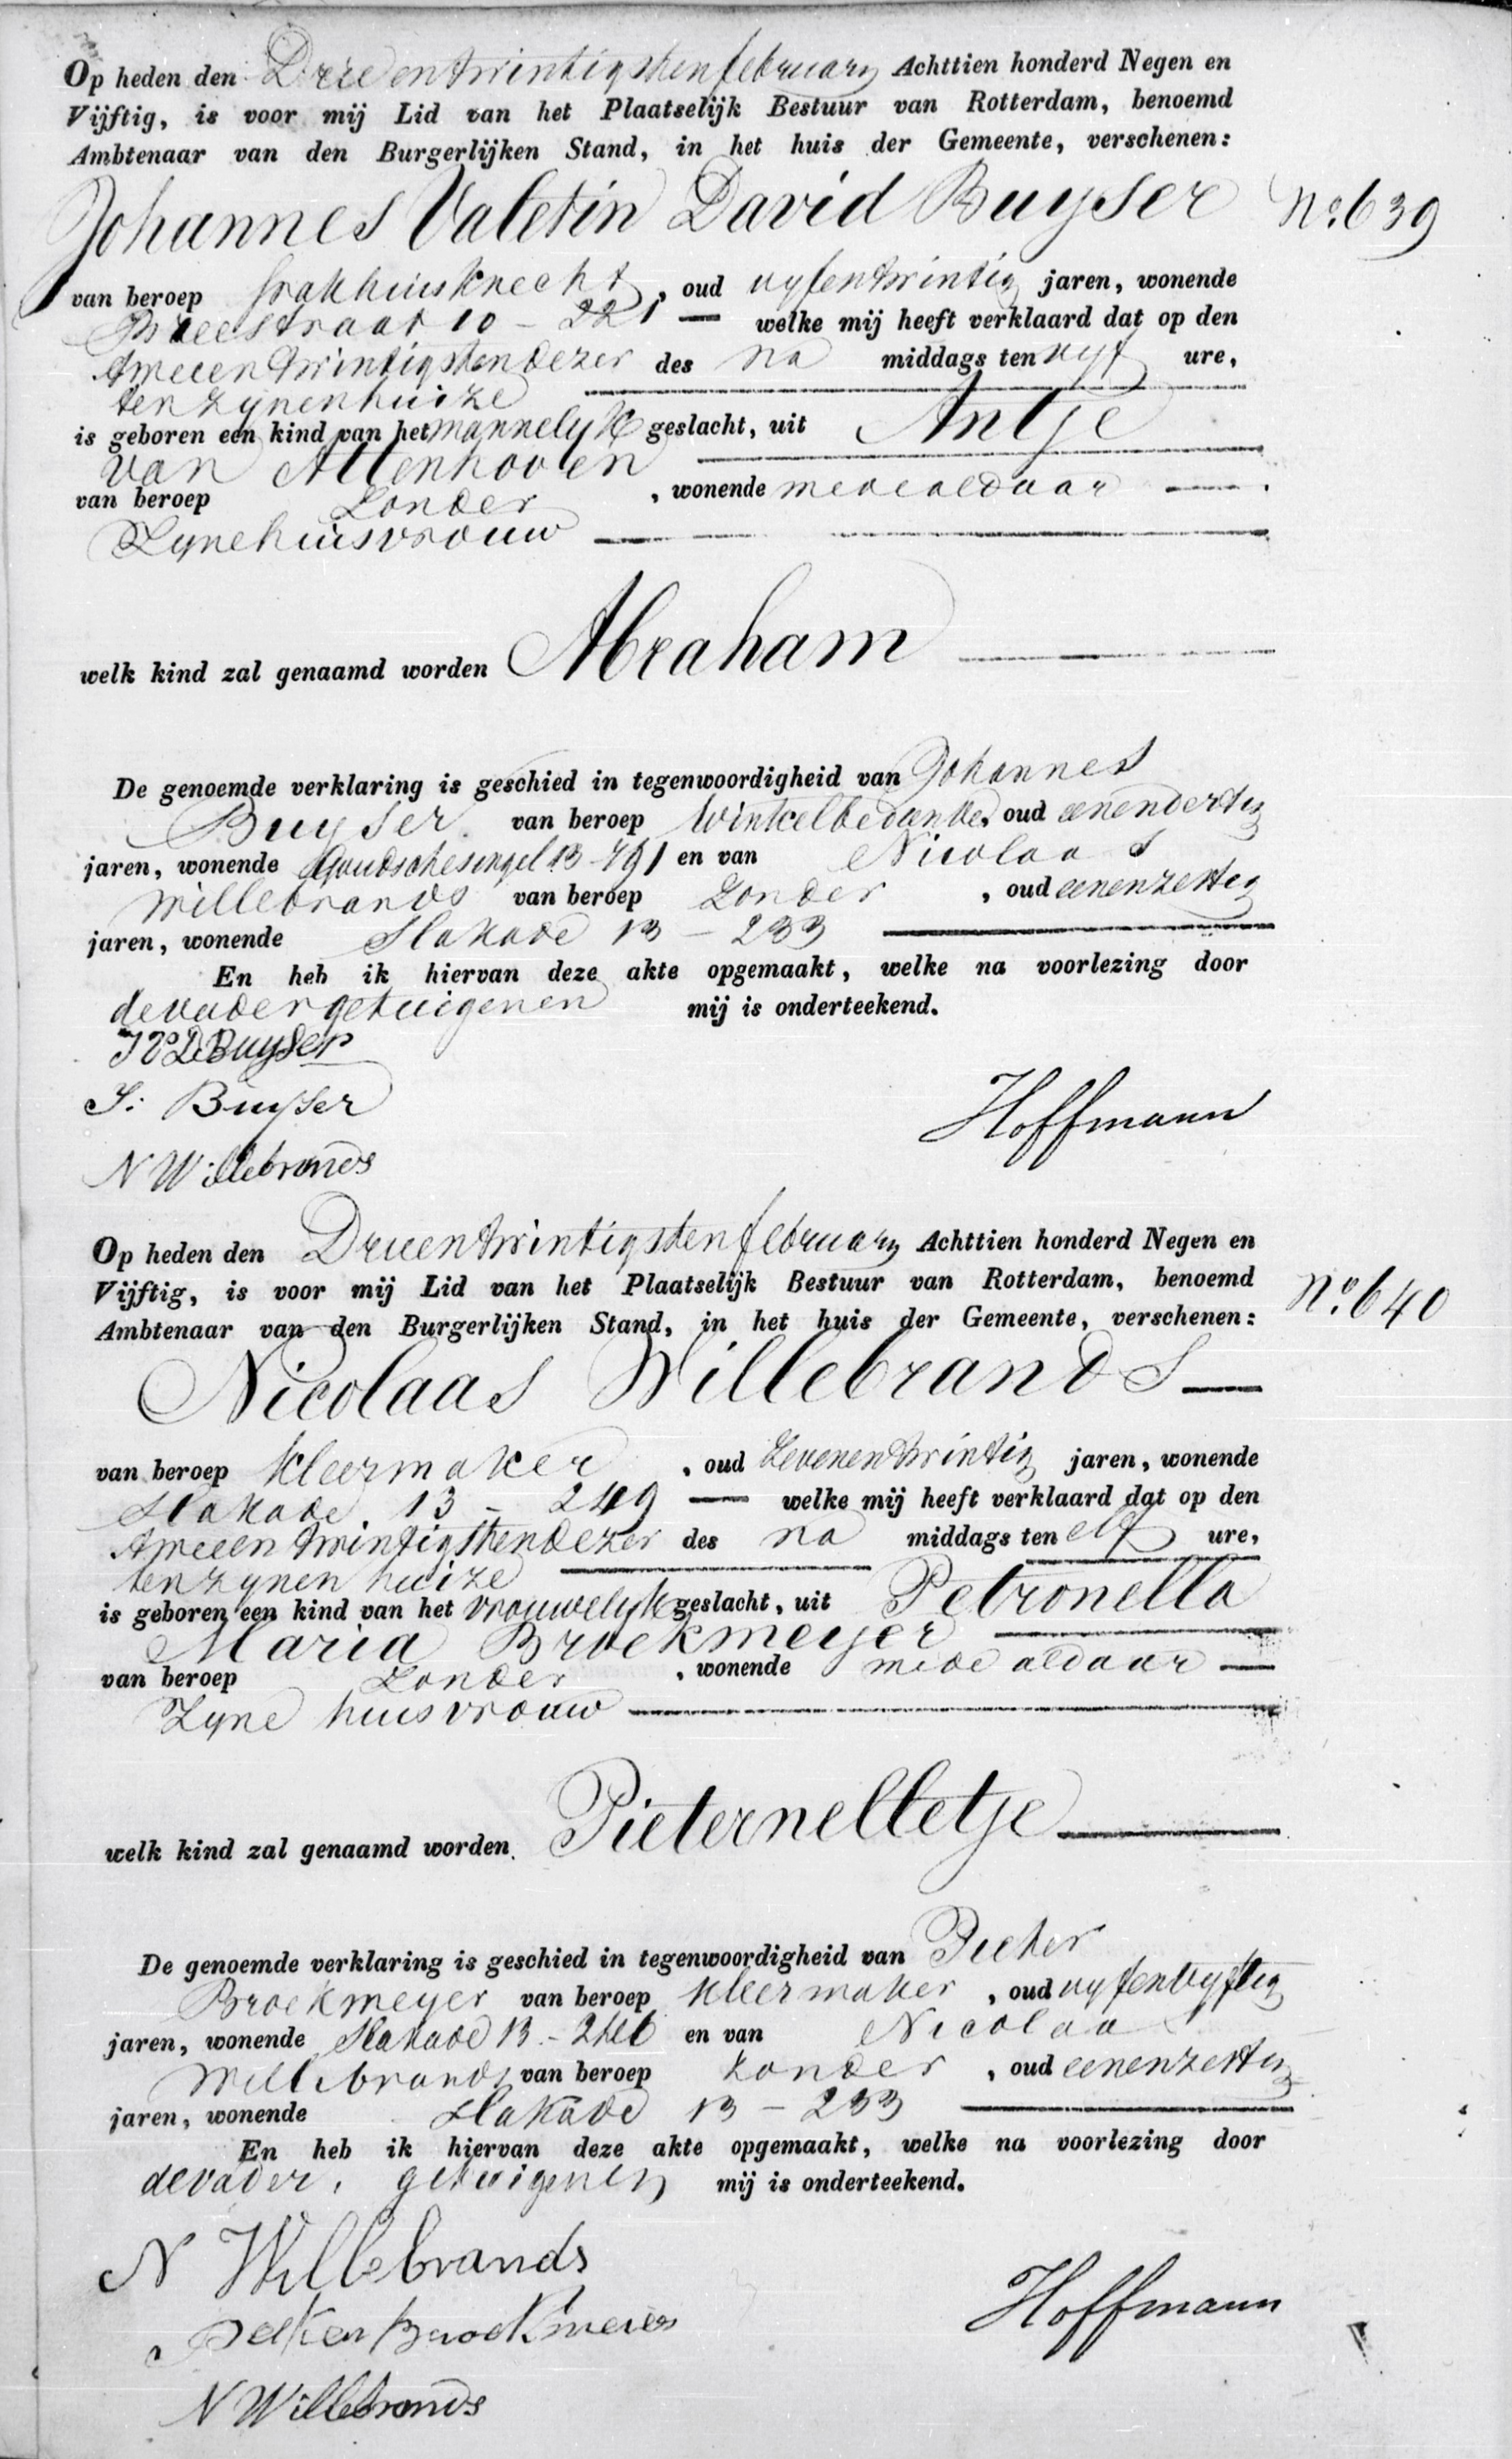 Op heden den Drieentwintigsten february Achttien honderd Negen en
Vijftig, is voor mij Lid van het Plaatselijk Bestuur van Rotterdam, benoemd
Ambtenaar van den Burgerlijken Stand, in het huis der Gemeente, verschenen:
Johannes Valetin David Buyser No. 639
van beroep pakhuisknecht, oud vyfentwintig jaren, wonende
Breestraat 10 - 221 — welke mij heeft verklaard dat op den
tweeentwintigsten dezer des na middags ten vyf ure,
ten zynen huize
is geboren een kind van het mannelyk geslacht, uit Antje
van Attenhoven
van beroep Zonder, wonende mede aldaar
Zyne huisvrouw
welk kind zal genaamd worden Abraham
De genoemde verklaring is geschied in tegenwoordigheid van Johannes
Buyser van beroep Winkelbediende, oud eenendertig
jaren, wonende Goudschesingel 13-491 en van Nicolaas
Willebrands van beroep Zonder, oud eenenzestig
jaren, wonende Slakade 13 - 233
En heb ik hiervan deze akte opgemaakt, welke na voorlezing door
de vader getuigen en mij is onderteekend.
J V D Buyser
J: Buyser
Hoffmann
N Willebrands
Op heden den Drieentwintigsten february Achttien honderd Negen en
Vijftig, is voor mij Lid van het Plaatselijk Bestuur van Rotterdam, benoemd No. 640
Ambtenaar van den Burgerlijken Stand, in het huis der Gemeente, verschenen:
Nicolaas Willebrands
van beroep kleermaker, oud Zevenentwintig jaren, wonende
Slakade 13 - 249 — welke mij heeft verklaard dat op den
tweeentwintigsten dezer des na middags ten elf ure,
ten zynen huize
is geboren een kind van het vrouwelyk geslacht, uit Petronella
Maria Broekmeyer
van beroep Zonder, wonende mede aldaar
Zyne huisvrouw
welk kind zal genaamd worden Pieternelletje
De genoemde verklaring is geschied in tegenwoordigheid van Pieter
Broekmeyer van beroep kleermaker, oud vyfenvyftig
jaren, wonende Slakade 13 - en van Nicolaas
Willebrands van beroep zonder, oud eenenzestig
jaren, wonende Slakade 13 - 233
En heb ik hiervan deze akte opgemaakt, welke na voorlezing door
de vader, getuigen en mij is onderteekend.
N Willebrands
Hoffmann
Broekmeier
N Willebrands